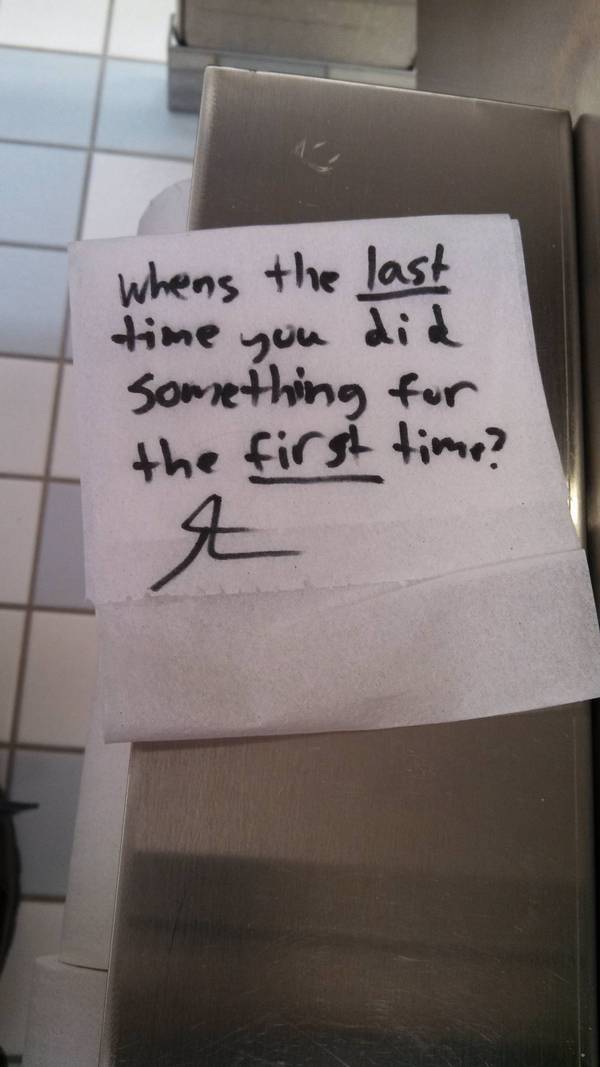 whens the last
time you did
something for
the first time?